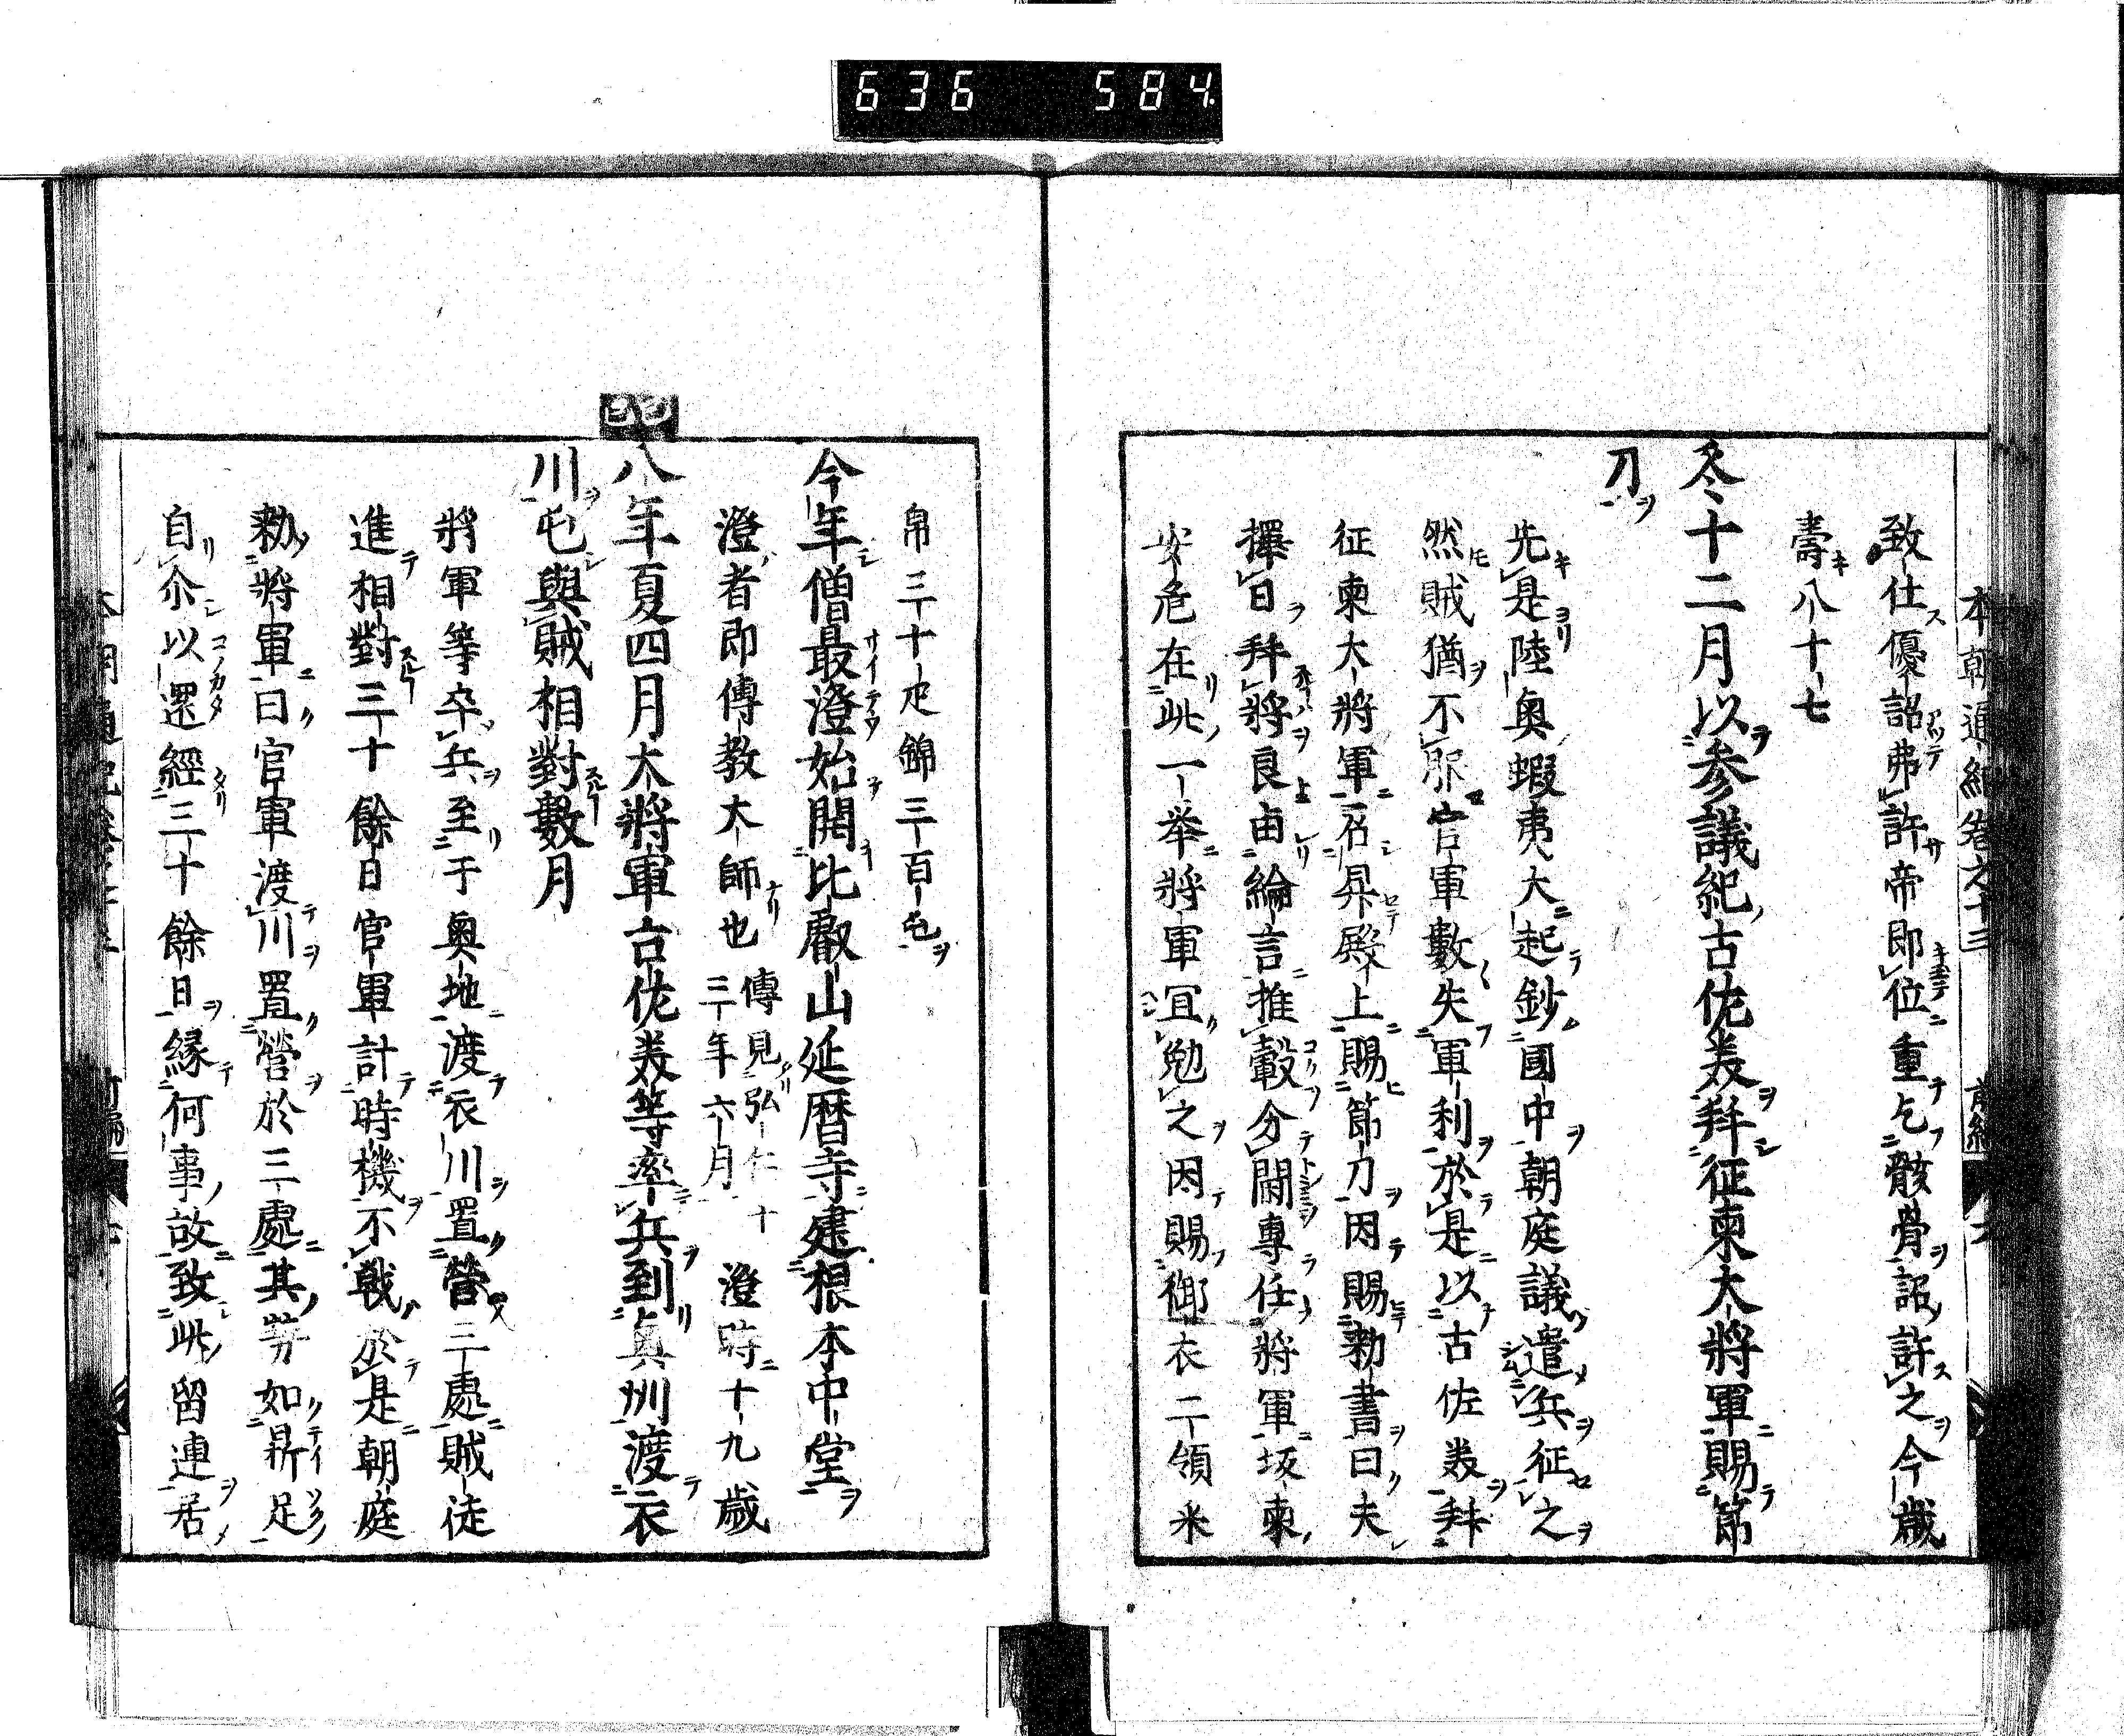 636 584
本朝通紀卷之十三 前編
致仕優詔弗許帝即位重乞骸骨詔許之今歲
壽八十七
冬十二月以参議紀古佐美拜征東大將軍賜節
刀
先是陸奥蝦夷大起鈔國中朝庭議遣兵征之
然賊猶不服官軍數失軍利於是以古佐美拜
征東大將軍召昇殿上賜節刀因賜勅書曰夫
擇日拜將良由綸言推轂分閫專任將軍坂東
安危在此一举將軍冝勉之因賜御衣二領米
帛三十疋錦三百屯
今年僧最澄始開比叡山延暦寺建根本中堂
澄者即傳教大師也傳見弘仁十三年六月澄時十九歳
八年夏四月大將軍古佐美等率兵到奥州渡衣
川屯與賊相對數月
將軍等卒兵至于奥地渡衣川置營三處賊徒
進相對三十餘日官軍計時機不戰於是朝庭
勅將軍曰官軍渡川置營於三處其勢如鼎足
自尒以還經三十餘日縁何事故致此留連居